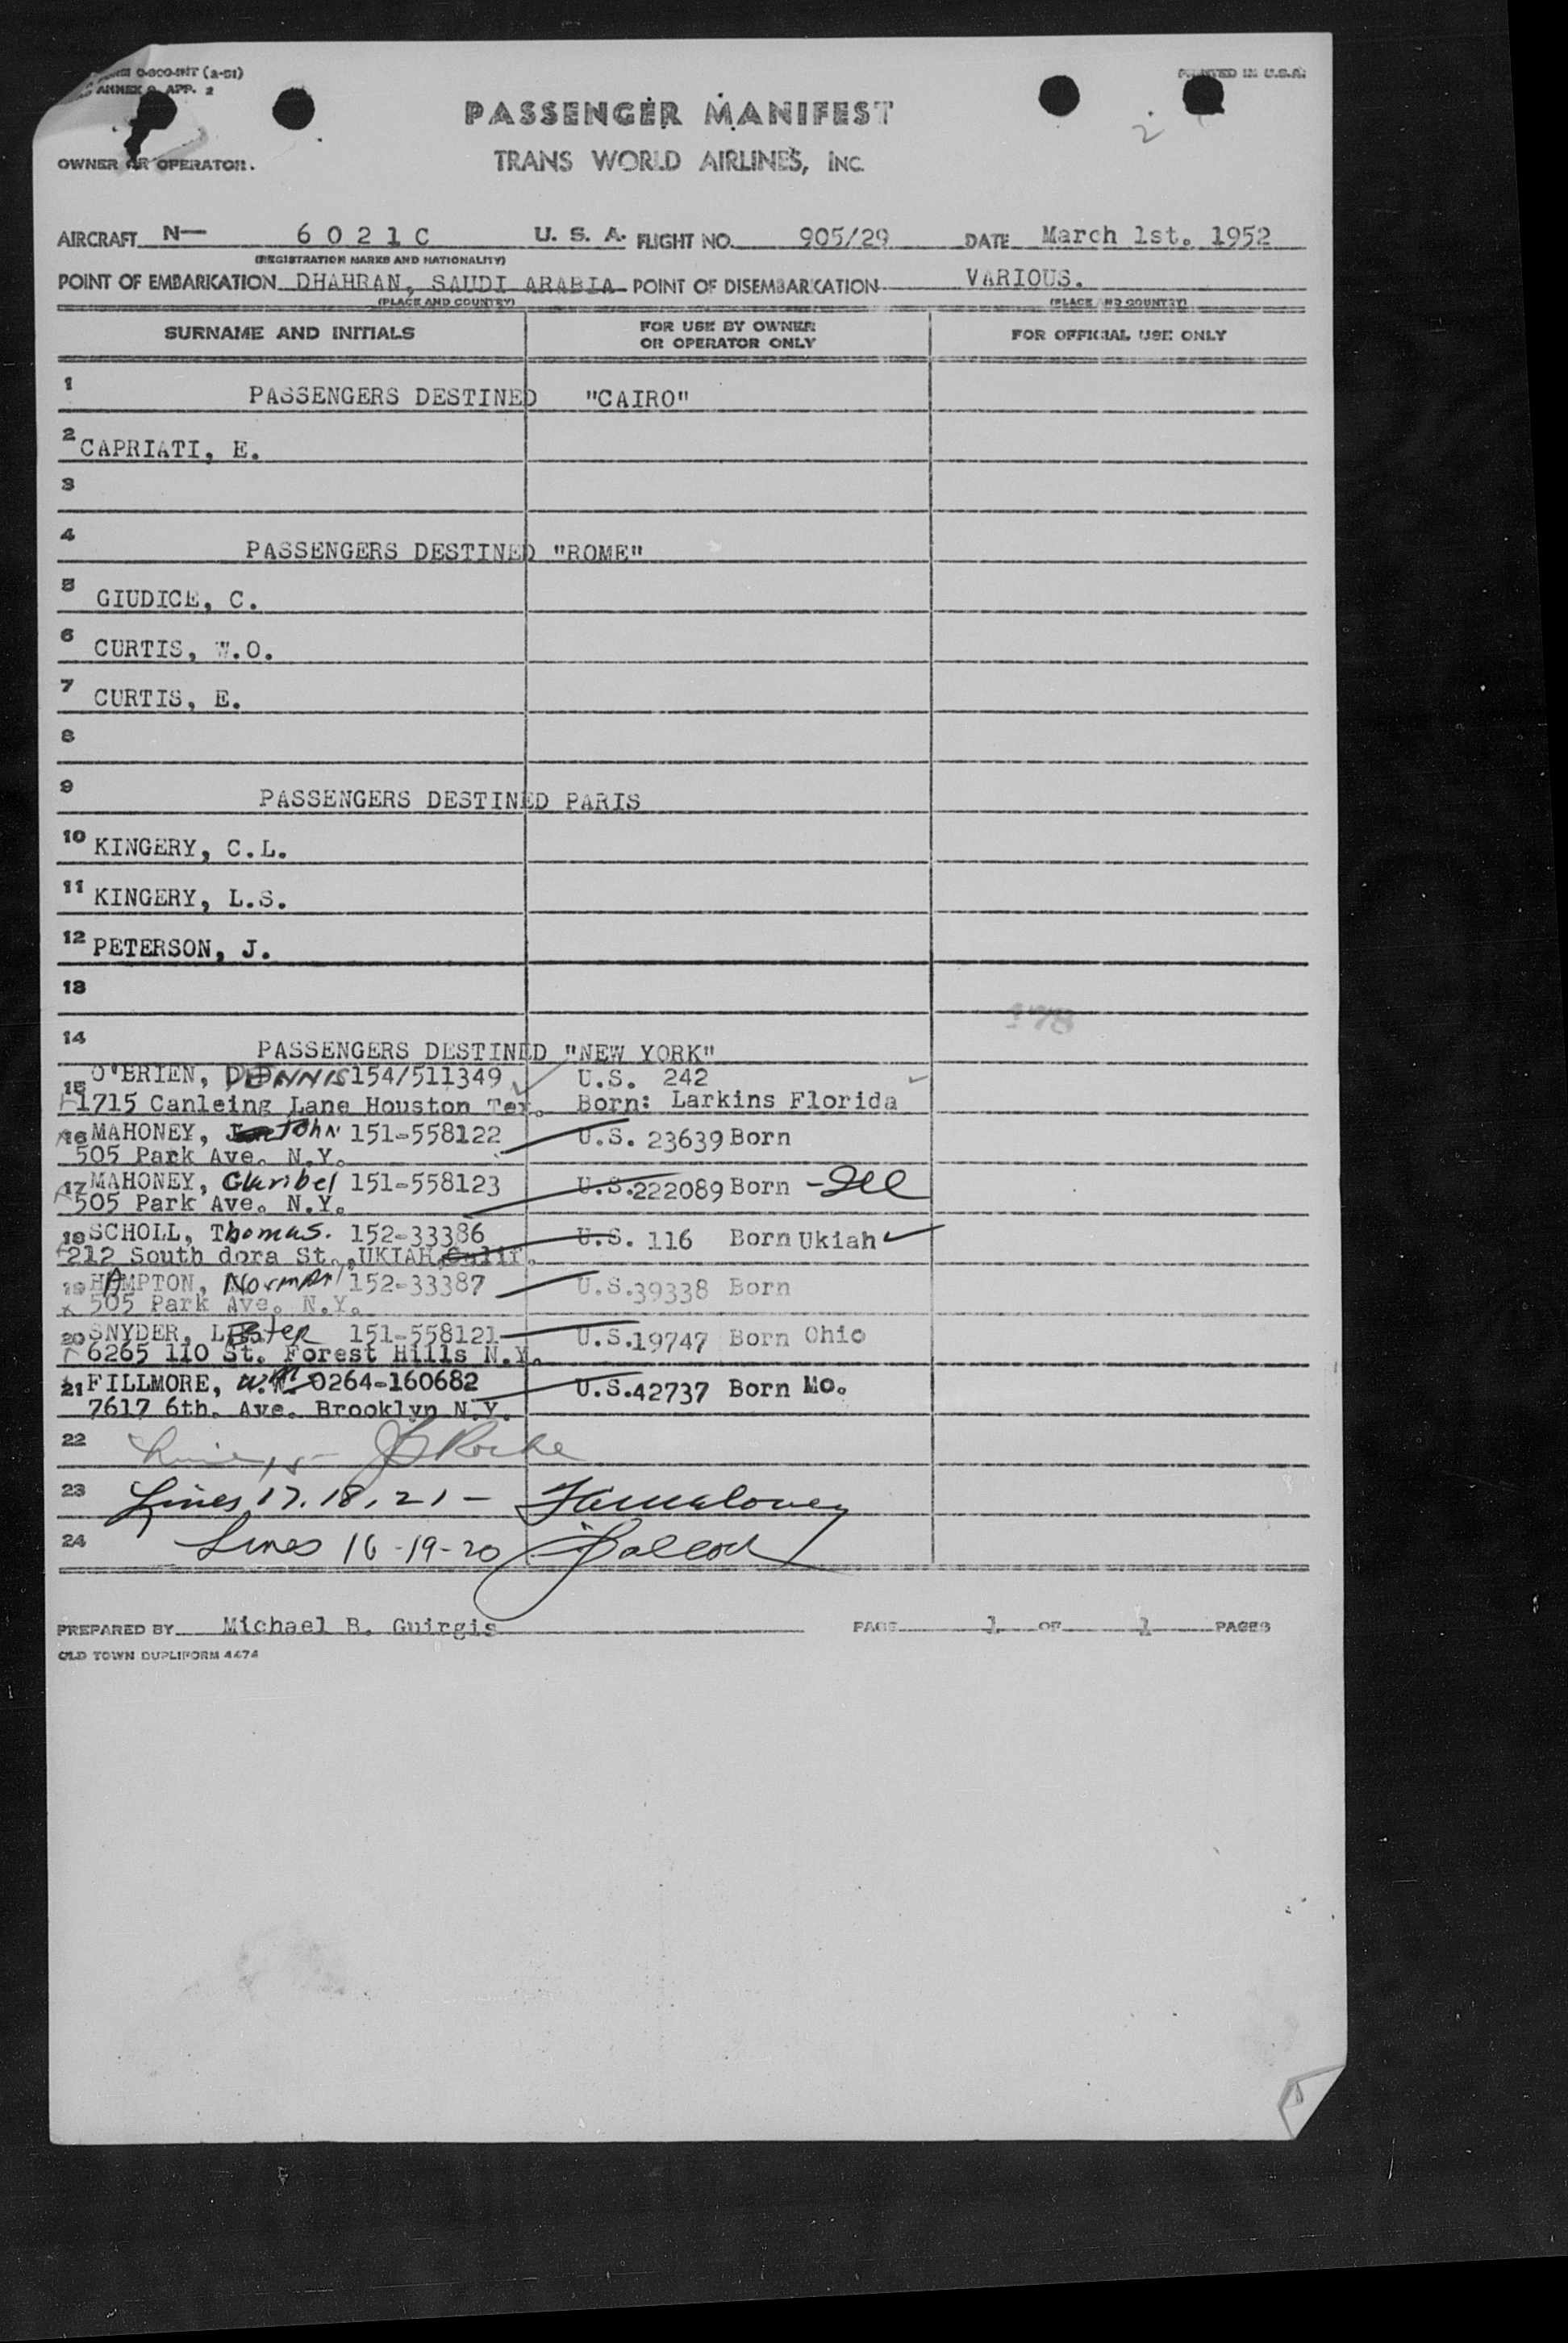 0-800-INT (2-51)
ANNEX 9 APP. 2
PRINTED IN U.S.A.
PASSENGER MANIFEST
2
OWNER OR OPERATOR.
TRANS WORLD AIRLINES, INC.
AIRCRAFT N— 6 0 2 1 C U. S. A. FLIGHT NO. 905/29 DATE March 1st. 1952
(REGISTRATION MARKS AND NATIONALITY)
POINT OF EMBARKATION DHAHRAN, SAUDI ARABIA POINT OF DISEMBARKATION VARIOUS.
(PLACE AND COUNTRY) (PLACE AND COUNTRY)
SURNAME AND INITIALS FOR USE BY OWNER OR OPERATOR ONLY FOR OFFICIAL USE ONLY
1 PASSENGERS DESTINED "CAIRO"
2 CAPRIATI, E.
3
4 PASSENGERS DESTINED "ROME"
5 GIUDICE, C.
6 CURTIS, W.O.
7 CURTIS, E.
8
9 PASSENGERS DESTINED PARIS
10 KINGERY, C.L.
11 KINGERY, L.S.
12 PETERSON, J.
13
178
14 PASSENGERS DESTINED "NEW YORK"
15 O'BRIEN, DENNIS 154/511349 U.S. 242
1715 Canleing Lane Houston Tex. Born: Larkins Florida
16 MAHONEY, John 151-558122 U.S. 23639 Born
505 Park Ave. N.Y.
17 MAHONEY, Claribel 151-558123 U.S. 222089 Born - Ill
505 Park Ave. N.Y.
18 SCHOLL, Thomas. 152-33386 U.S. 116 Born Ukiah
212 South dora St., UKIAH, Calif.
19 HAMPTON, Norman 152-33387 U.S. 39338 Born
505 Park Ave. N.Y.
20 SNYDER, Lester 151-558121 U.S. 19747 Born Ohio
6265 110 St. Forest Hills N.Y.
21 FILLMORE, Wm. 0264-160682 U.S. 42737 Born Mo.
7617 6th. Ave. Brooklyn N.Y.
22 Line 15 - Roche
23 Lines 17. 18, 21 -
24 Lines 16 - 19 - 20
PREPARED BY Michael B. Guirgis PAGE 1 OF 1 PAGES
OLD TOWN DUPLIFORM 4474